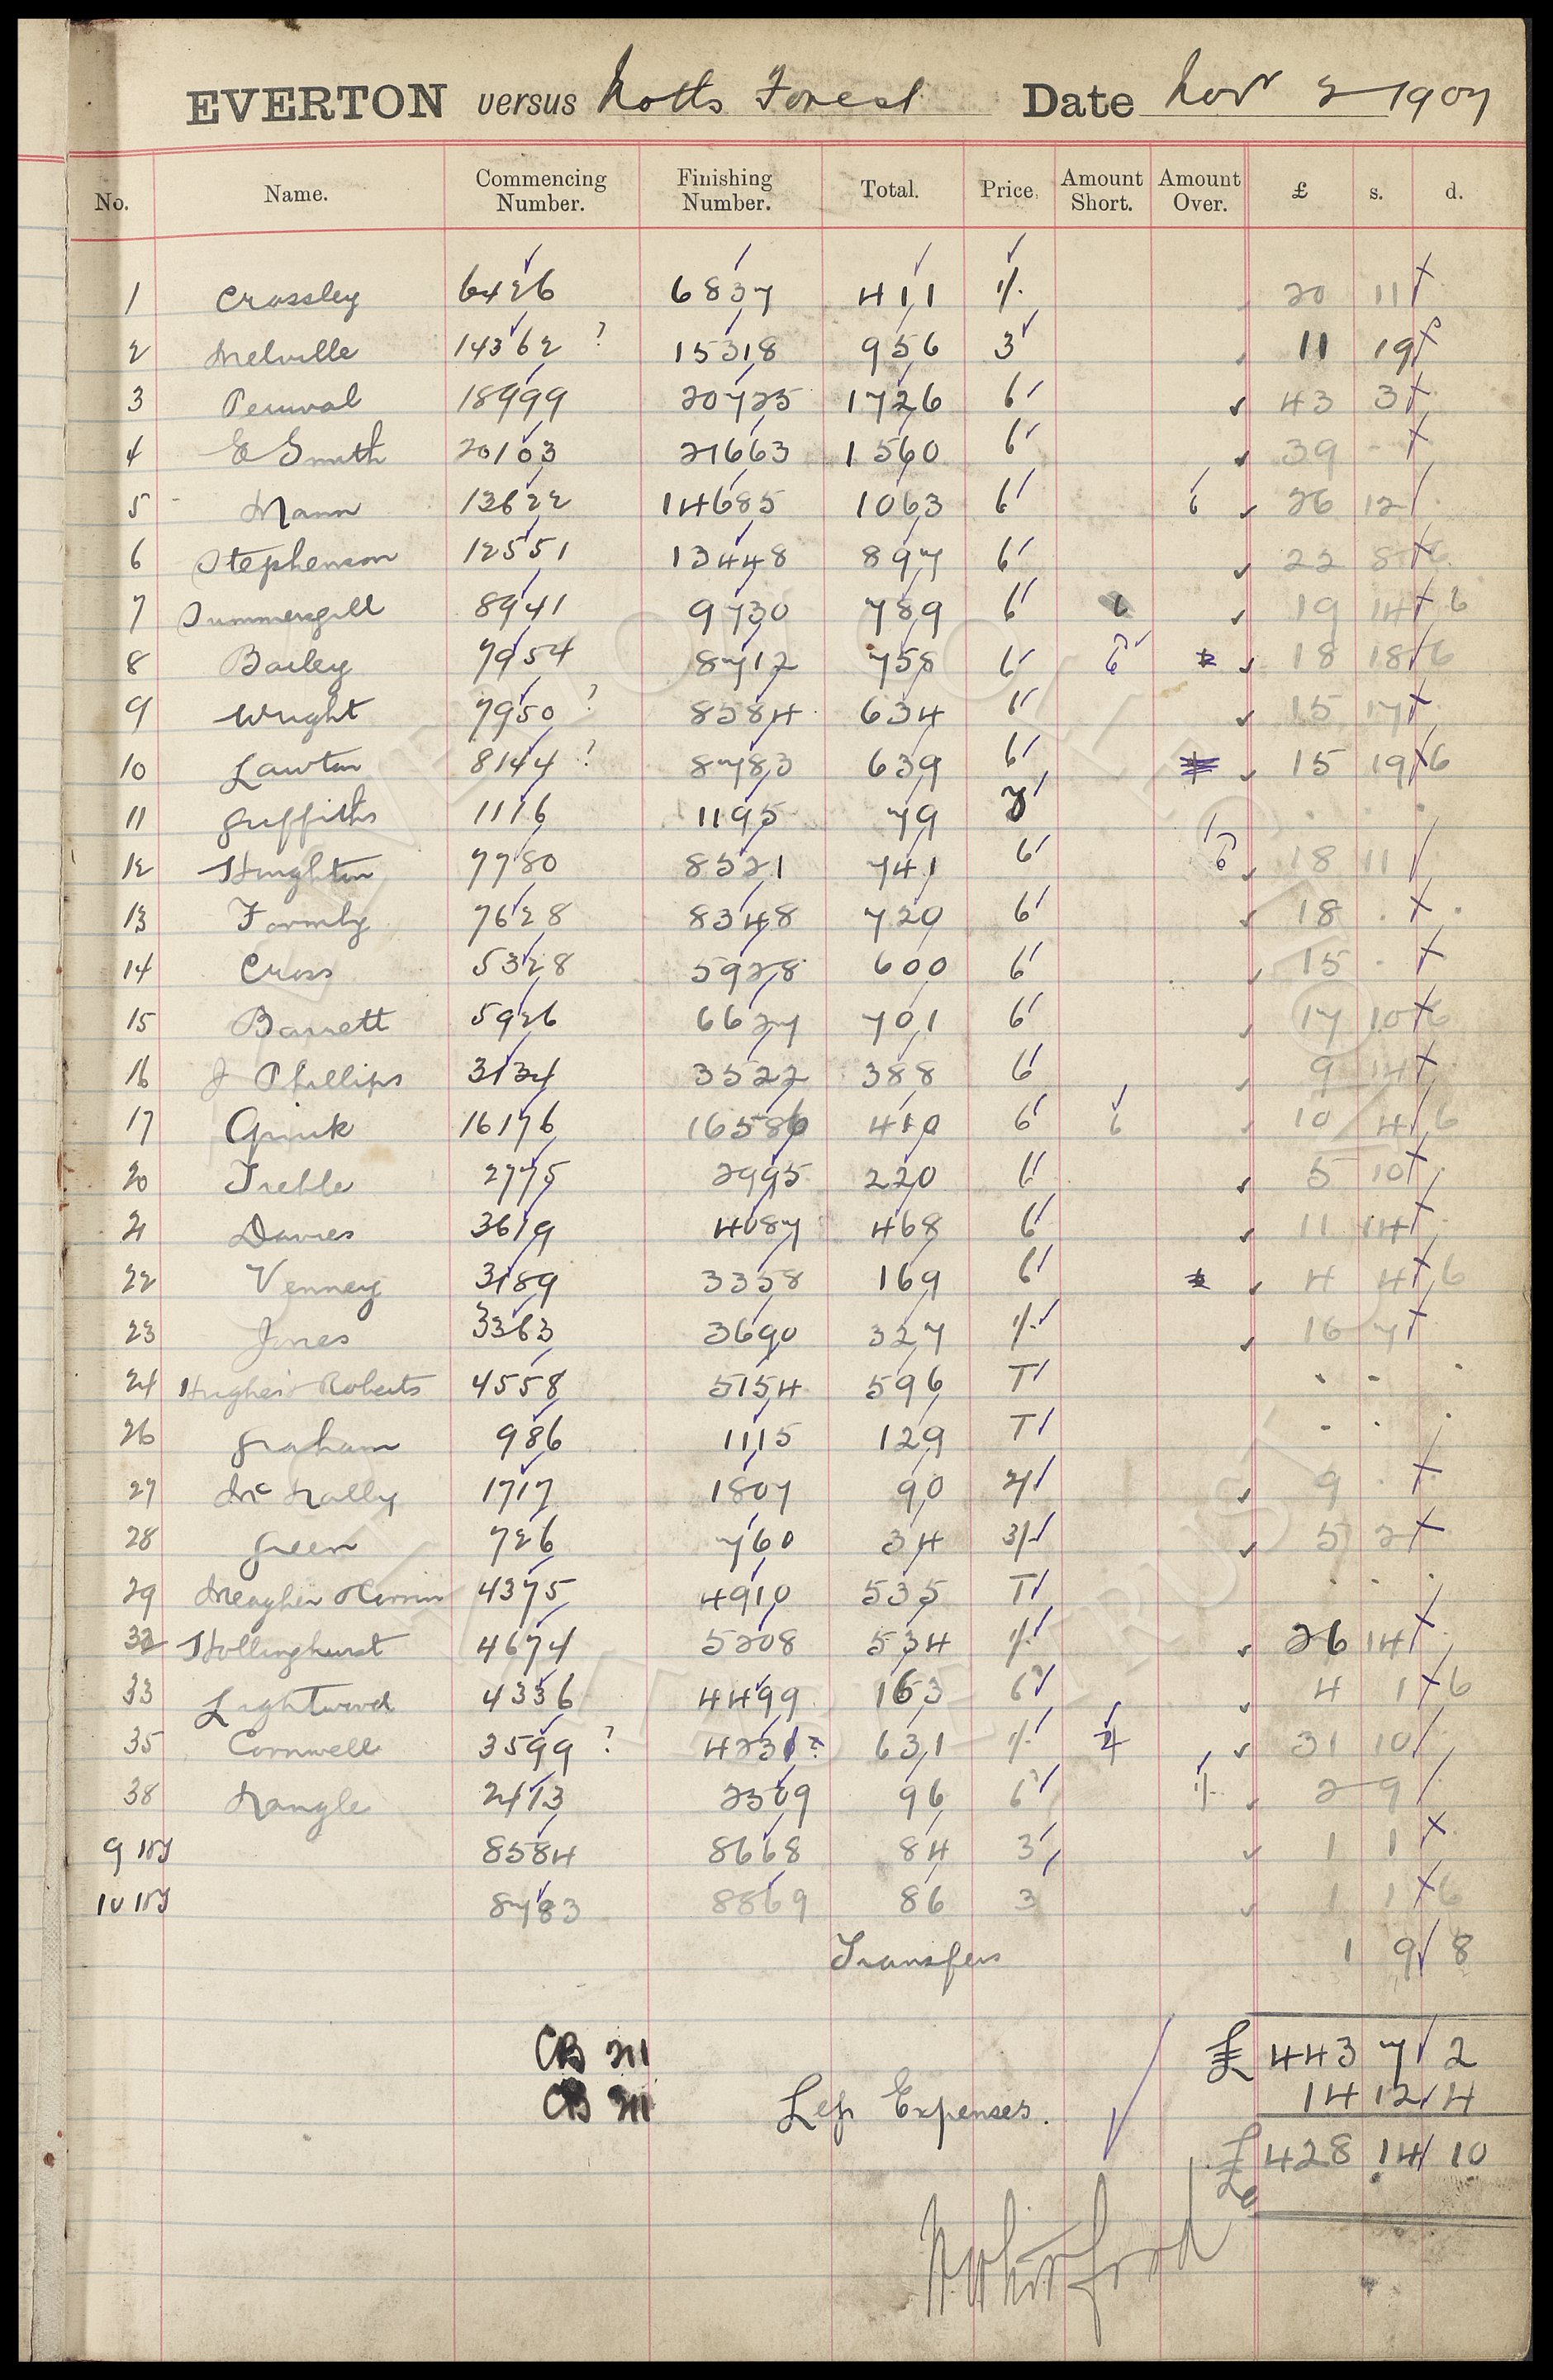 EVERTON versus Notts Forest Date Nov 2 1907
No. Name. Commencing Number. Finishing Number. Total. Price. Amount Short. Amount Over. £ s. d.
1 Crossley 6426 6837 411 1/- 20 11
2 Melville 14362 ? 15318 956 3 11 19
3 Percival 18999 20725 1726 6 43 3
4 E Smith 20103 21663 1560 6 39 -
5 Mann 13622 14685 1063 6 6 26 12
6 Stephenson 12551 13448 897 6 22 8 6
7 Summersgill 8941 9730 789 6 6 19 14 6
8 Bailey 7954 8712 758 6 6 18 18 6
9 Wright 7950 ? 8584 634 6 15 17
10 Lawton 8144 ? 8783 639 6 15 19 6
11 Griffiths 1116 1195 79
12 Houghton 7780 8521 741 6 6 18 11
13 Formby 7628 8348 720 6 18 . .
14 Cross 5328 5928 600 6 15 .
15 Barrett 5926 6627 701 6 17 10 6
16 J Phillips 3134 3522 388 6 9 14
17 Quirk 16176 16586 410 6 6 10 4 6
20 Treble 2775 2995 220 6 5 10
21 Davies 3619 4087 468 6 11 14
22 Venney 3189 3358 169 6 4 4 6
23 Jones 3363 3690 327 1/- 16 7
24 Hughes & Roberts 4558 5154 596 T . . .
26 Graham 986 1115 129 T . . .
27 McNally 1717 1807 90 2/ 9 .
28 Green 726 760 34 3/- 5 2
29 Meagher 4375 4910 535 T . . .
32 Hollinghurst 4674 5208 534 1/- 26 14
33 Lightwood 4336 4499 163 6 4 1 6
35 Cornwell 3599 ? 4231 ? 631 1/- 31 10
38 Nangle 2413 2509 96 6 1/- 2 9
9 8584 8668 84 3 1 1
10 8783 8869 86 3 1 1 6
Transfers 1 9 8
£ 443 7 2
CB 211
CB 211
Less Expenses. 14 12 4
£ 428 14 10